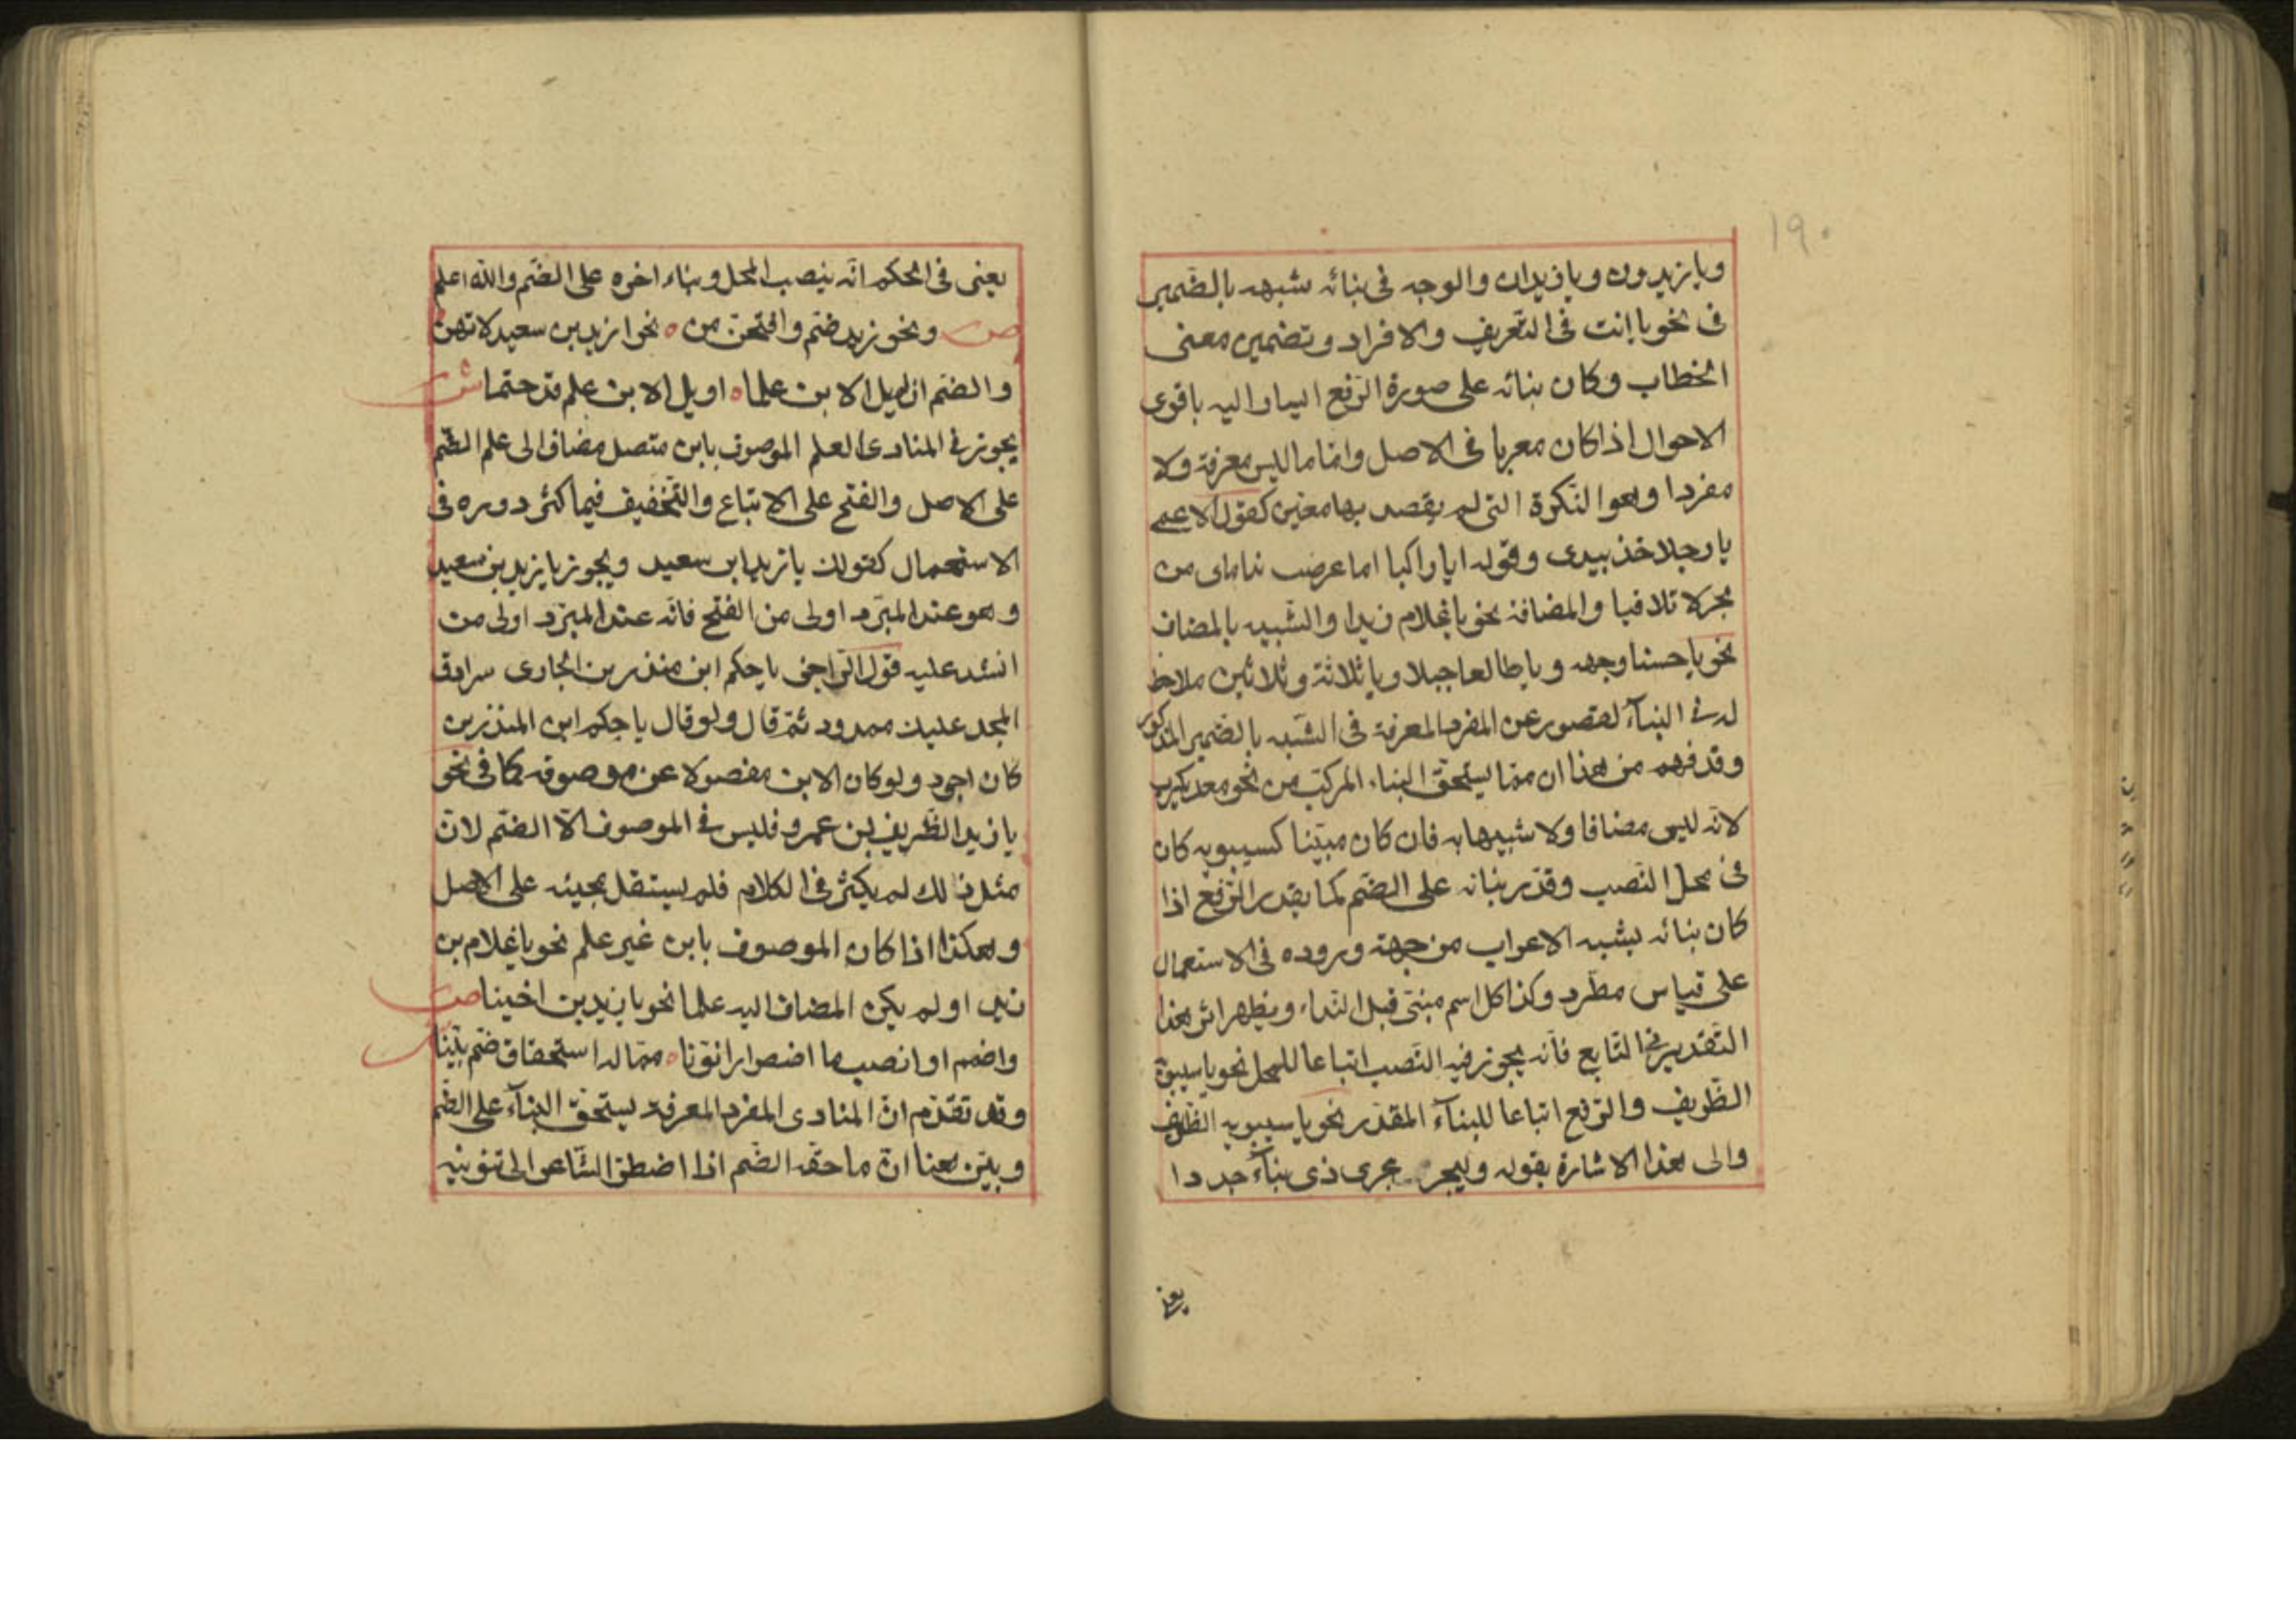 ١٩٠
ويا زيدون ويا زيدان والوجه فى بنائه شبهه بالضمير
فى نحو يا انت فى التعريف والافراد وتضمين معنى
الخطاب وكان بنائه على صورة الرفع ايساوا ليه باقوى
الاحوال اذا كان معربا فى الاصل وامّا ما ليس معرفة ولا
مفردا وهو النكرة التى لم يقصد بها معيّن كقول الاعمى
يا رجلا خذ بيدى وقوله ايا راكبا اما عرضت نداماى من
نجرلا تلاقيا والمضافة نحو يا غلام زيدا والشّبيه بالمضاف
نحو يا حسنا وجهه ويا طالعا جبلا ويا ثلاثة وثلاثين ملاحظ
له فى البناء لقصور عن المفرد المعرفة فى الشّبه بالضمير المذكور
وقد فهم من هذا ان ممّا يستحقّ البناء المركّب من نحو معديكرب
لانّه ليس مضافا ولا شبيها به فان كان مبنيّنا كسيبويه كان
فى محل النّصب وقدّر بنائه على الضّم كما يقدر الرّفع اذا
كان بنائه يشبه الاعراب من جهة وروده فى الاستعمال
على قياس مطّرد وكذا كل اسم مبنىّ قبل النّداء ويظهر اثر هذا
التّقدير فى التّابع فانّه يجوز فيه النّصب اتباعا للمحل نحو يا سيبويه
الظّريف والرّفع اتباعا للبناء المقدّر نحو يا سيبويه الظّريف
والى هذا الاشارة بقوله وليجر مجرى ذى بناء جددا
يعنى
يعنى فى الحكم انّه ينصب المحل وبناء اخره على الضّم والله اعلم
ص ونحو زيد ضمّ وافتحنّ من ٥ نحو ازيد بن سعيد لا تهن
والضّم ان لم يل الابن علما ٥ او يل الابن علم قد حتما ش
يجوز فى المنادى العلم الموصوف بابن متصل مضاف الى علم الضّم
على الاصل والفتح على الاتباع والتّخفيف فيما كثر دوره فى
الاستعمال كقولك يا زيد ابن سعيد ويجوز يا زيد بن سعيد
وهو عند المبرّد اولى من الفتح فانّه عند المبرّد اولى من
انشد عليه قول الرّاجز يا حكم ابن منذر بن الجارى سرادق
المجد عليك ممدود ثمّ قال ولو قال يا حكم ابن المنذر بن
كان اجود ولو كان الابن مفصولا عن موصوفه كما فى نحو
يا زيد الظّريف بن عمرو فليس فى الموصوف الّا الضّم لانّ
مثل ذلك لم يكثر فى الكلام فلم يستقل مجيئه على الاصل
وهكذا اذا كان الموصوف بابن غير علم نحو يا غلام بن
زيد او لم يكن المضاف اليه علما نحو يا زيد بن اخينا ص
واضمم او انصب ما اضطرارا نوّنا ٥ ممّا له استحقاق ضمّ بيّنا ش
وقد تقدّم انّ المنادى المفرد المعرفة يستحقّ البناء على الضّم
وبيّن هنا انّ ما حقّه الضّم اذا اضطرّ الشّاعر الى تنوينه